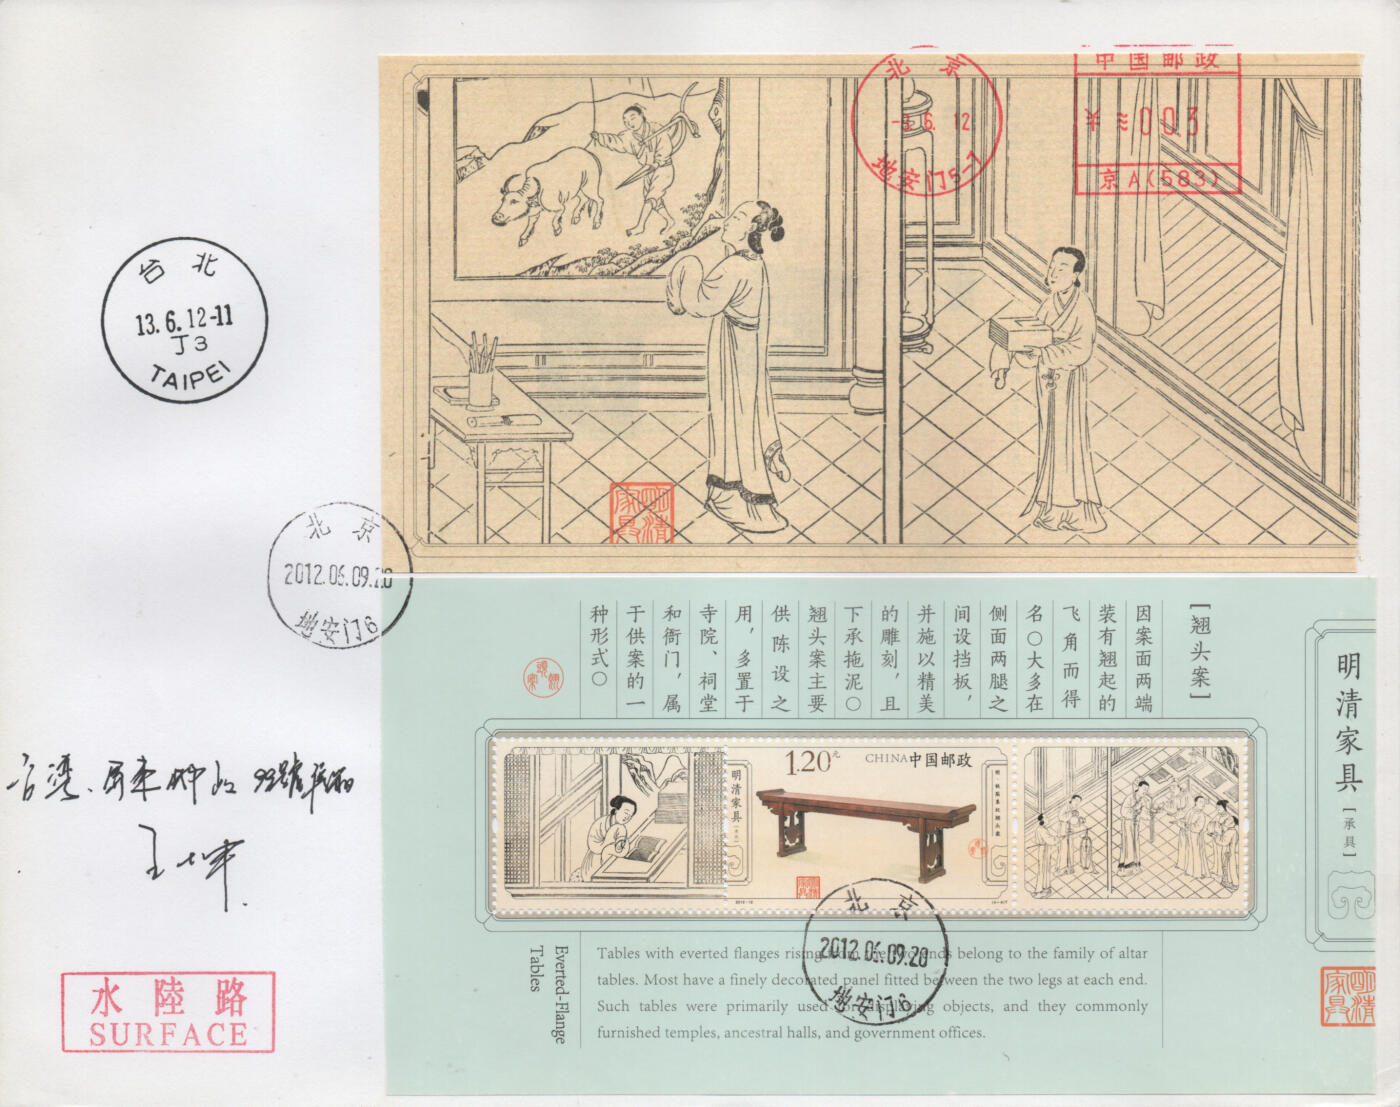 北京
-3.6.12
地安门5-7
中国邮政
¥≈003
京A(583)
台北
13.6.12-11
J3
TAIPEI
明清家具
北京
2012.06.09.20
地安门6
[翘头案]
因案面两端
装有翘起的
飞角而得
名。大多在
侧面两腿之
间设挡板，
并施以精美
的雕刻，且
下承拖泥。
翘头案主要
供陈设之
用，多置于
寺院、祠堂
和衙门，属
于供案的一
种形式。
翘头案
明清家具
[承具]
1.20元
CHINA中国邮政
明清家具
明清家具
2012-12
北京
2012.06.09.20
地安门6
Everted-Flange
Tables
Tables with everted flanges rising from the two ends belong to the family of altar
tables. Most have a finely decorated panel fitted between the two legs at each end.
Such tables were primarily used for displaying objects, and they commonly
furnished temples, ancestral halls, and government offices.
明清家具
台湾
水陸路
SURFACE